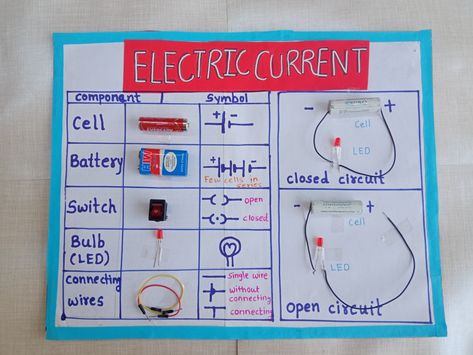 ELECTRIC CURRENT
component Symbol
Cell
Battery
Few cells in
series
HW
Switch
open
closed
Bulb
(LED)
connecting
wires
single wire
without
connecting
connecting
- +
Cell
LED
closed circuit
- +
Cell
LED
open circuit